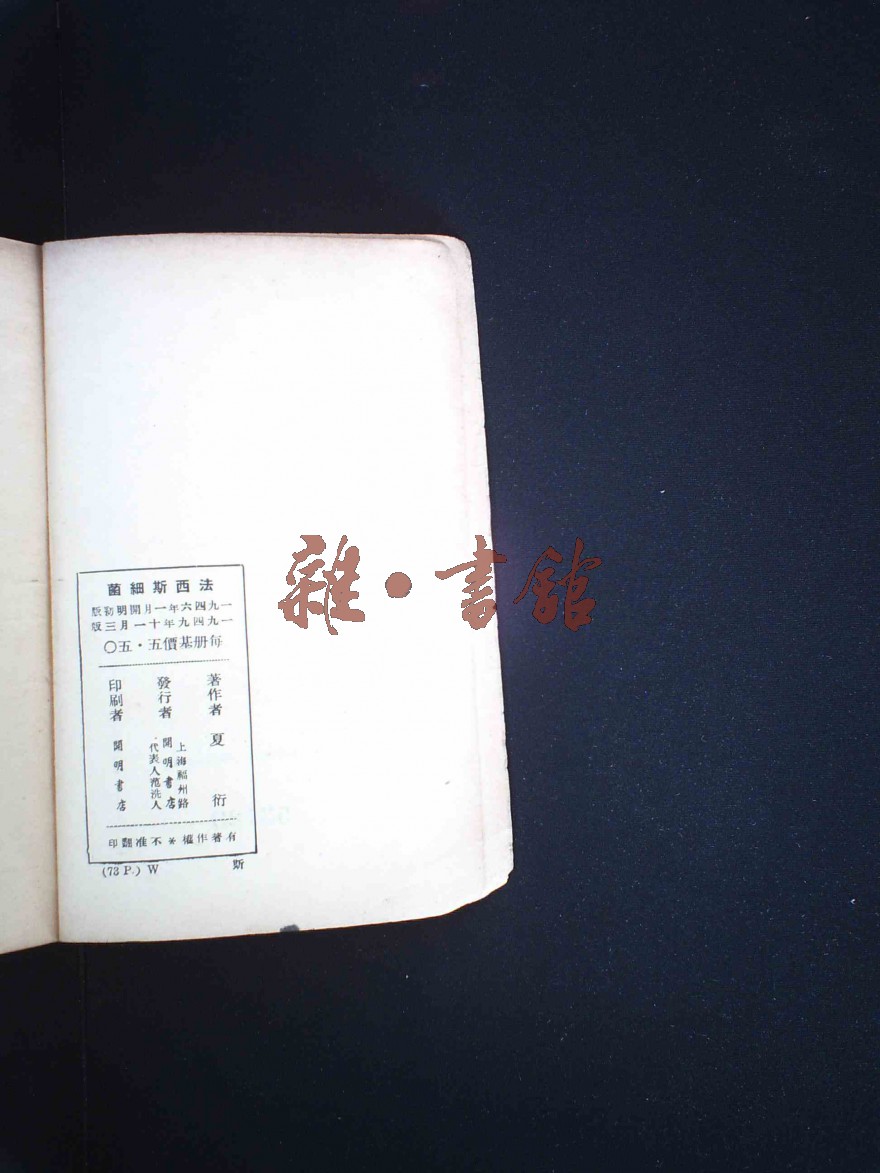 法西斯細菌
一九四六年一月開明初版
一九四九年十一月三版
每册基價五・五〇
著作者 夏衍
發行者 上海福州路
開明書店
代表人范洗人
印刷者 開明書店
有著作權＊不准翻印
(73 P.) W 斯
雜・書館